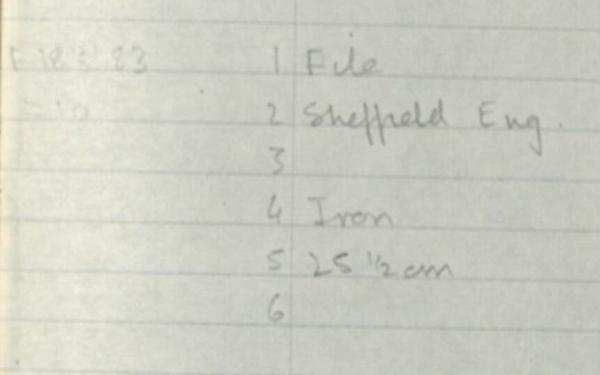 1 File
2 Sheffield Eng.
3
4 Iron
5 25 1/2 cm
6